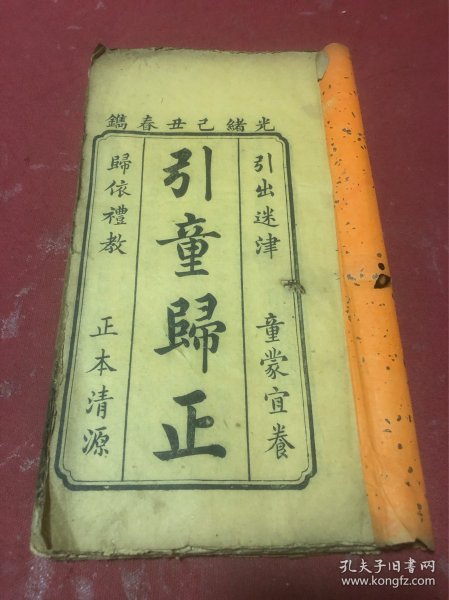 光緒己丑春鐫
引出迷津 童蒙宜養
引童歸正
歸依禮教 正本清源
孔夫子旧书网
www.kongfz.com